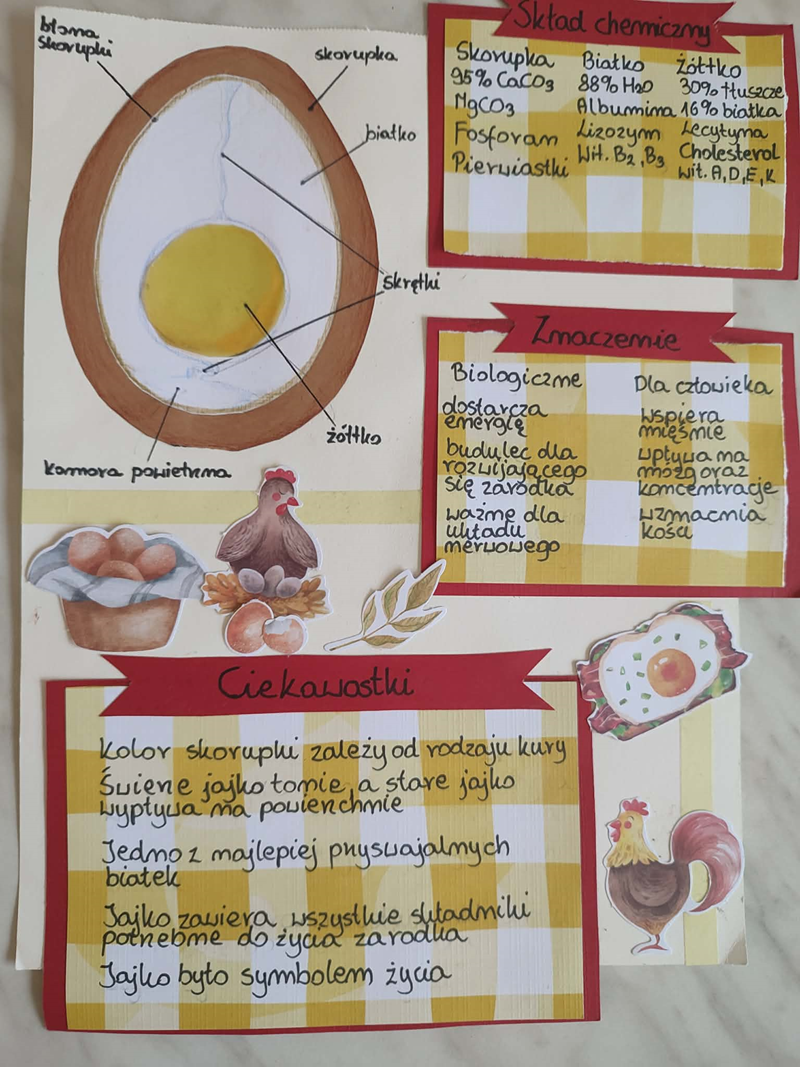 błona
skorupki
skorupka
białko
skrętki
żółtko
komora powietrzna
Skład chemiczny
Skorupka
95% CaCO3
MgCO3
Fosforan
Pierwiastki
Białko
88% H2O
Albumina
Lizozym
Wit. B2, B3
Żółtko
30% tłuszcze
16% białka
Lecytyna
Cholesterol
wit. A, D, E, K
Znaczenie
Biologiczne
dostarcza
energię
budulec dla
rozwijającego
się zarodka
ważne dla
układu
nerwowego
Dla człowieka
wspiera
mięśnie
wpływa na
mózg oraz
koncentracje
wzmacnia
kości
Ciekawostki
Kolor skorupki zależy od rodzaju kury
Świeże jajko tonie, a stare jajko
wypływa na powierzchnie
Jedno z najlepiej przyswajalnych
białek
Jajko zawiera wszystkie składniki
potrzebne do życia zarodka
Jajko było symbolem życia